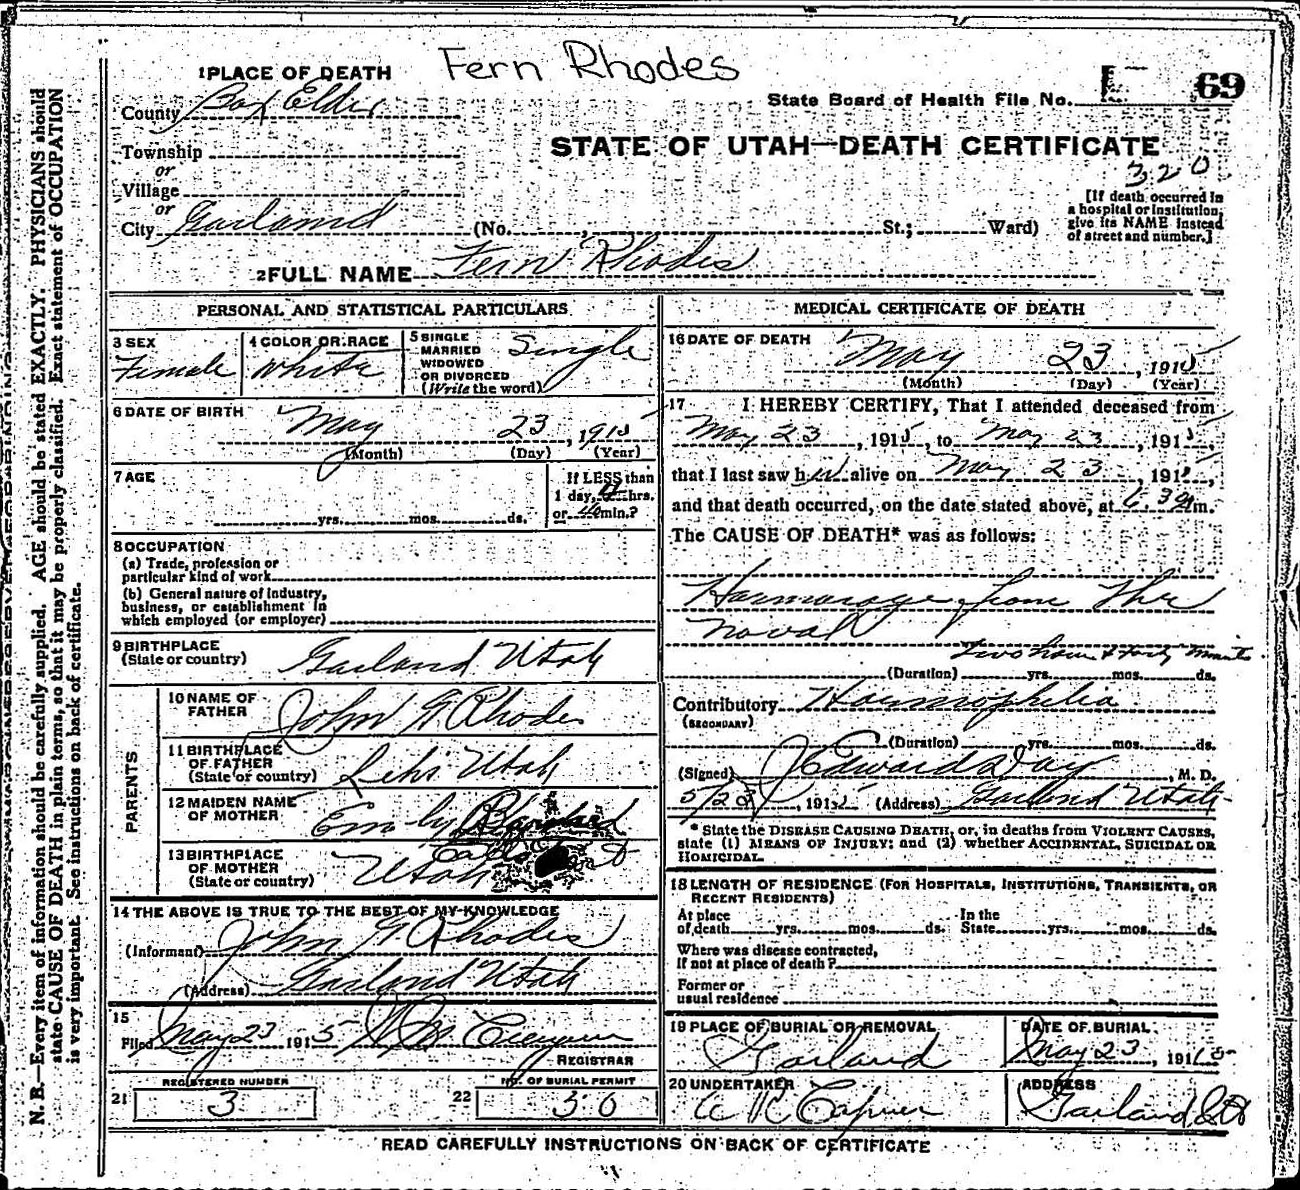 Fern Rhodes
1 PLACE OF DEATH
County Box Elder
State Board of Health File No. 69
STATE OF UTAH—DEATH CERTIFICATE
320
Township
or
Village
or
City Garland (No. , St.; Ward)
[If death occurred in
a hospital or institution,
give its NAME instead
of street and number.]
2 FULL NAME Fern Rhodes
PERSONAL AND STATISTICAL PARTICULARS
3 SEX
Female
4 COLOR OR RACE
White
5 SINGLE
MARRIED
WIDOWED
OR DIVORCED
(Write the word)
Single
6 DATE OF BIRTH
May 23, 1915
(Month) (Day) (Year)
7 AGE
yrs. mos. ds.
If LESS than
1 day, hrs.
or 40 min.?
8 OCCUPATION
(a) Trade, profession or
particular kind of work
(b) General nature of industry,
business, or establishment in
which employed (or employer)
9 BIRTHPLACE
(State or country)
Garland Utah
PARENTS
10 NAME OF
FATHER
John G. Rhodes
11 BIRTHPLACE
OF FATHER
(State or country)
Lehi Utah
12 MAIDEN NAME
OF MOTHER
Emily
13 BIRTHPLACE
OF MOTHER
(State or country)
Utah
14 THE ABOVE IS TRUE TO THE BEST OF MY KNOWLEDGE
(Informant) John G. Rhodes
(Address) Garland Utah
15
Filed May 23 1915
REGISTRAR
21 REGISTERED NUMBER
3
22 NO. OF BURIAL PERMIT
50
MEDICAL CERTIFICATE OF DEATH
16 DATE OF DEATH
May 23, 1915
(Month) (Day) (Year)
17 I HEREBY CERTIFY, That I attended deceased from
May 23, 1915, to May 23, 1915,
that I last saw her alive on May 23, 1915,
and that death occurred, on the date stated above, at m.
The CAUSE OF DEATH* was as follows:
Haemorage from the
naval
two hours & forty minuts
(Duration) yrs. mos. ds.
Contributory Haemophelia
(SECONDARY)
(Duration) yrs. mos. ds.
(Signed) J Edward Day, M. D.
5/23, 1915 (Address) Garland Utah
* State the DISEASE CAUSING DEATH, or, in deaths from VIOLENT CAUSES,
state (1) MEANS OF INJURY; and (2) whether ACCIDENTAL, SUICIDAL OR
HOMICIDAL.
18 LENGTH OF RESIDENCE (FOR HOSPITALS, INSTITUTIONS, TRANSIENTS, OR
RECENT RESIDENTS)
At place
of death yrs. mos. ds.
In the
State yrs. mos. ds.
Where was disease contracted,
If not at place of death?
Former or
usual residence
19 PLACE OF BURIAL OR REMOVAL
Garland
DATE OF BURIAL
May 23, 1915
20 UNDERTAKER
ADDRESS
Garland
READ CAREFULLY INSTRUCTIONS ON BACK OF CERTIFICATE
N. B.—Every item of information should be carefully supplied. AGE should be stated EXACTLY. PHYSICIANS should
state CAUSE OF DEATH in plain terms, so that it may be properly classified. Exact statement of OCCUPATION
is very important. See instructions on back of certificate.